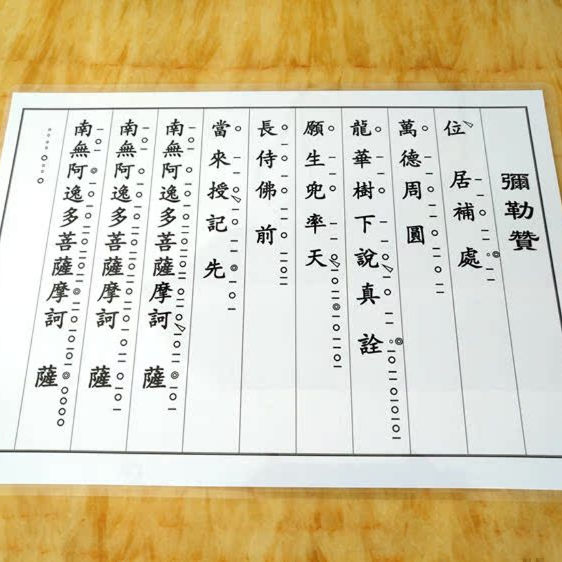 彌勒贊
位居補處
萬德周圓
龍華樹下說真詮
願生兜率天
長侍佛前
當來授記先
南無阿逸多菩薩摩訶薩
南無阿逸多菩薩摩訶薩
南無阿逸多菩薩摩訶薩